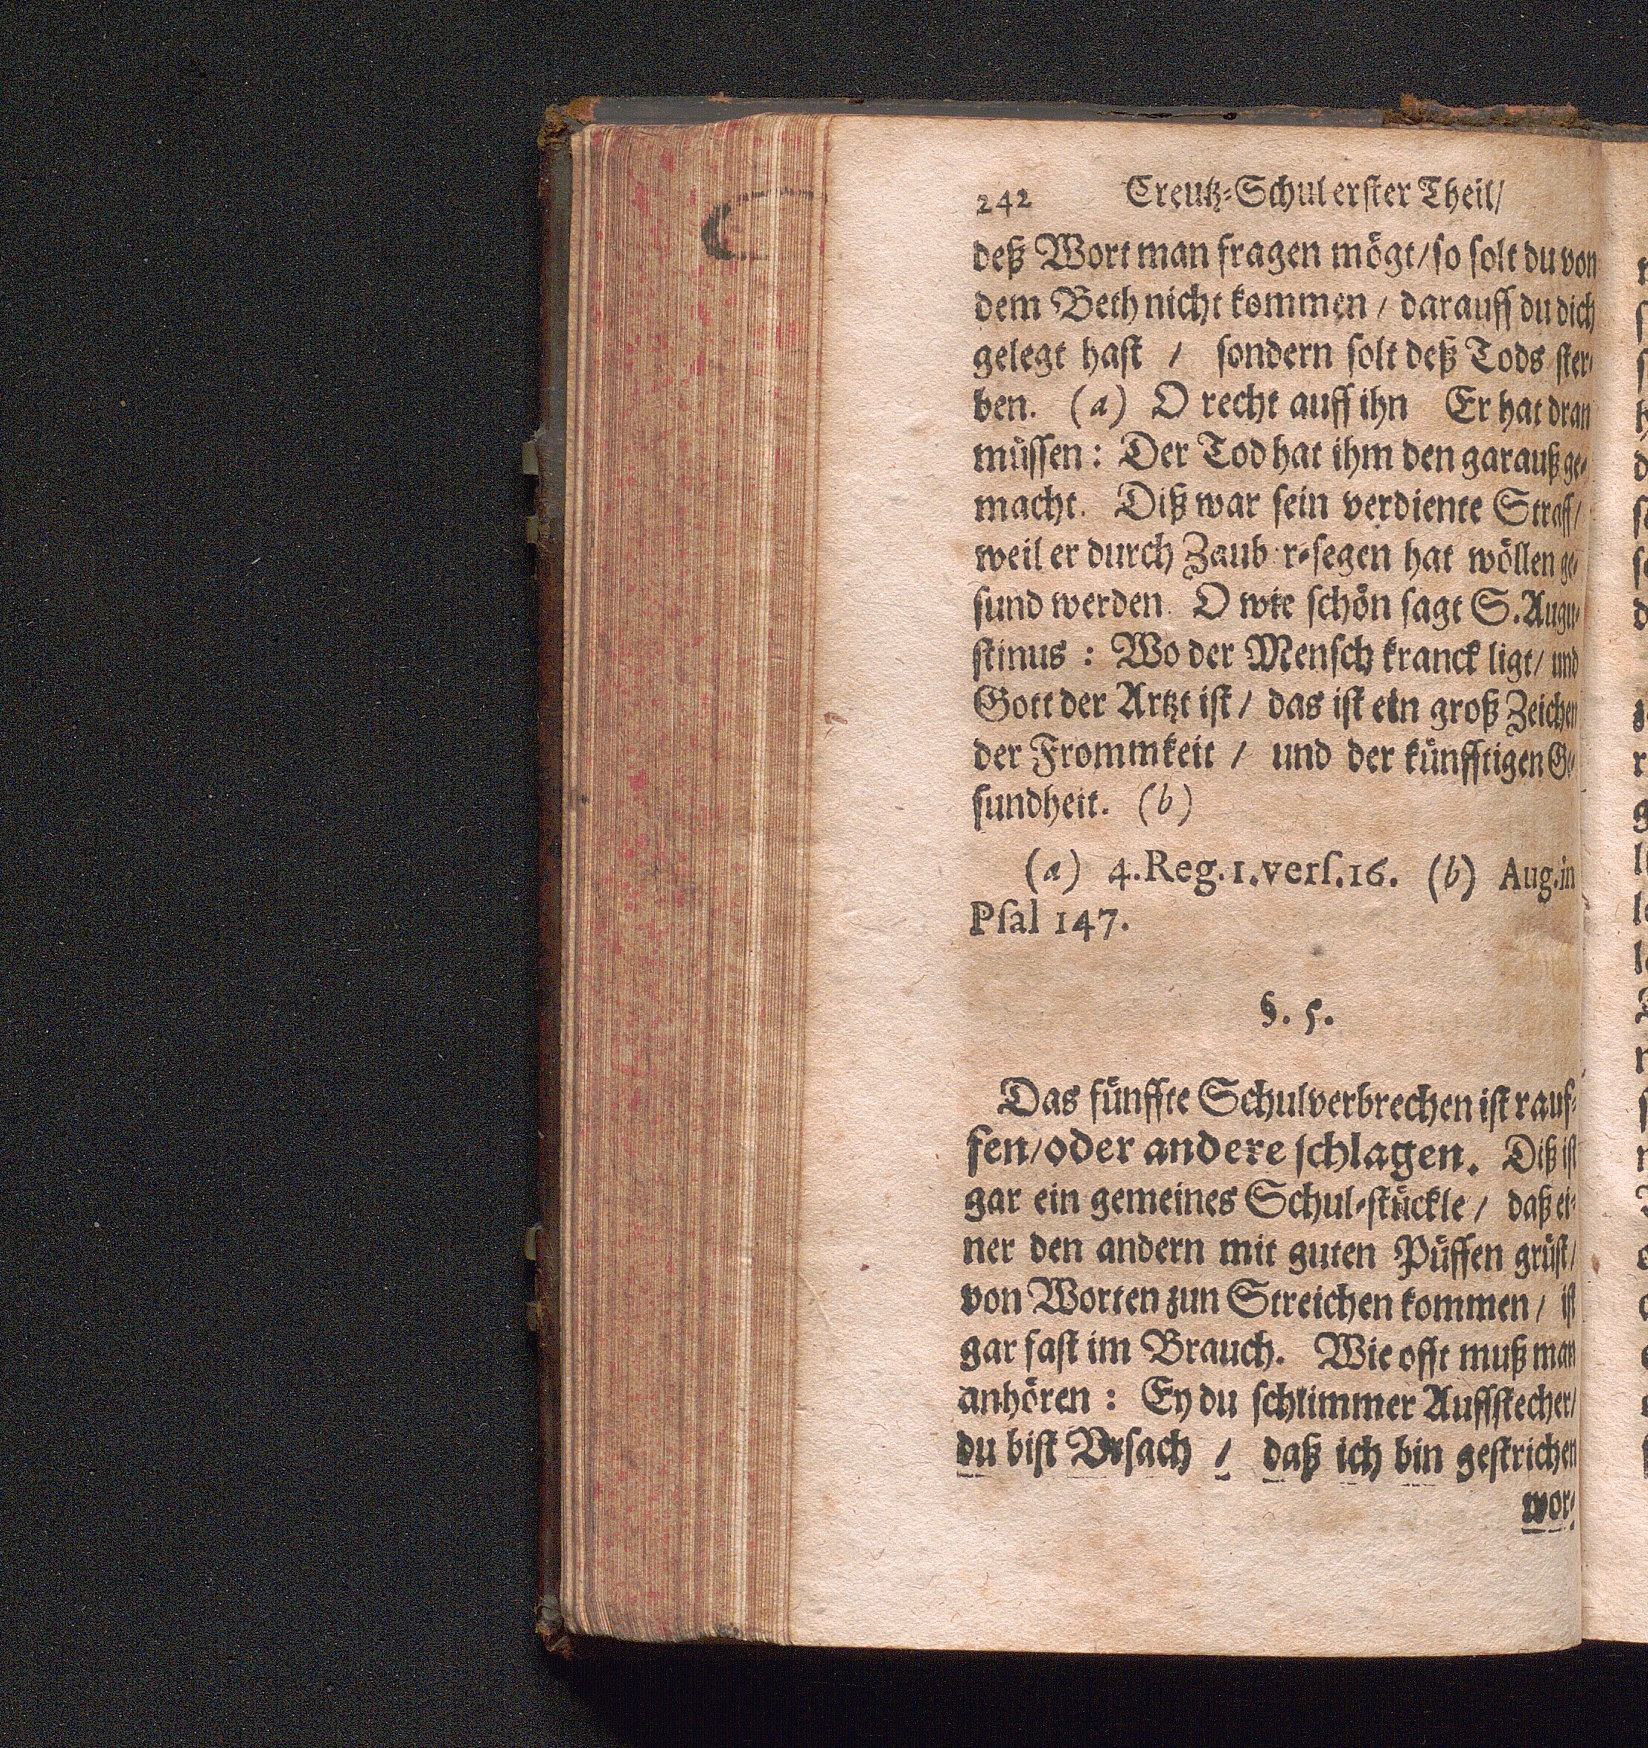 242 Creutz-Schul erster Theil/
deß Wort man fragen mögt/so solt du von
dem Beth nicht kommen / darauff du dich
gelegt hast / sondern solt deß Tods ster-
ben. (a) O recht auff ihn Er hat dran
müssen: Der Tod hat ihm den garauß ge-
macht. Diß war sein verdiente Straff/
weil er durch Zaub r-segen hat wöllen ge-
sund werden. O wie schön sagt S. Augu-
stinus: Wo der Mensch kranck ligt/ und
Gott der Artzt ist / das ist ein groß Zeichen
der Frommkeit / und der künfftigen Ge-
sundheit. (b)
(a) 4. Reg. 1. vers. 16. (b) Aug. in
Psal 147.
§. 5.
Das fünffte Schulverbrechen ist rauf-
fen/oder andere schlagen. Diß ist
gar ein gemeines Schul-stückle / daß ei-
ner den andern mit guten Püffen grüst/
von Worten zun Streichen kommen / ist
gar fast im Brauch. Wie offt muß man
anhören: Ey du schlimmer Auffstecher/
du bist Vrsach / daß ich bin gestrichen
wor-